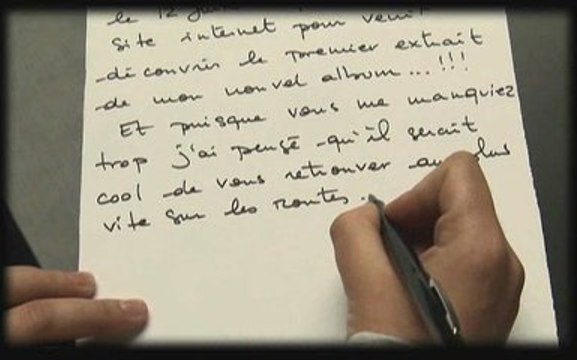 le 12 
site internet pour venir
découvrir le premier extrait
de mon nouvel album...!!!
Et puisque vous me manquiez
trop j'ai pensé qu'il serait
cool de vous retrouver au plus
vite sur les routes.